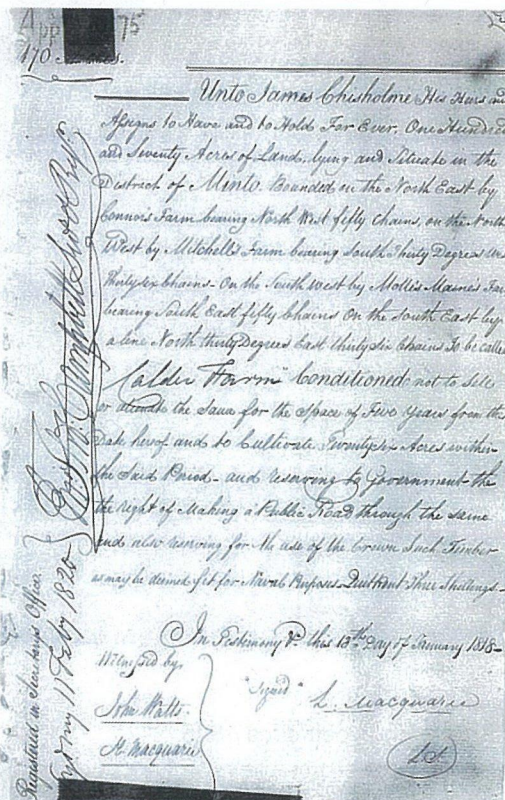 App 75
170
Unto James Chisholme His Heirs and
Assigns to Have and to Hold For Ever, One Hundred
and Seventy Acres of Land, lying and Situate in the
District of Minto. Bounded on the North East by
Connors Farm bearing North West fifty Chains, on the North
West by Mitchell's Farm bearing South Thirty Degrees Wes
Thirty six Chains - On the South West by Mollis Maine's Far
bearing South East fifty Chains On the South East by
a line North thirty Degrees East thirty six Chains To be called
"Calder Farm" Conditioned not to Sell
or alienate the Same for the Space of Five Years from the
Date hereof and to Cultivate Twenty six Acres within
the Said Period - and reserving to Government the
the right of Making a Public Road through the same
and also reserving for the use of the Crown Such Timber
as may be deemed fit for Naval Purposes - Quit Rent Three Shillings -
In Testimony &c. this 13th Day of January 1818 -
Witnessed by
"Signed" L. Macquarie
John Watts.
H. Macquarie
L.S
Registered in Secretarys Office
Sydney 11 Feby 1820
Campbell Secy